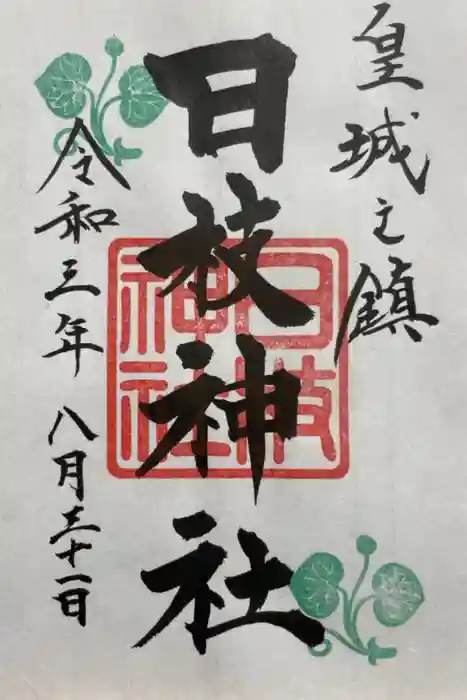 皇城之鎮
日枝神社
日枝神社
令和三年 八月三十一日